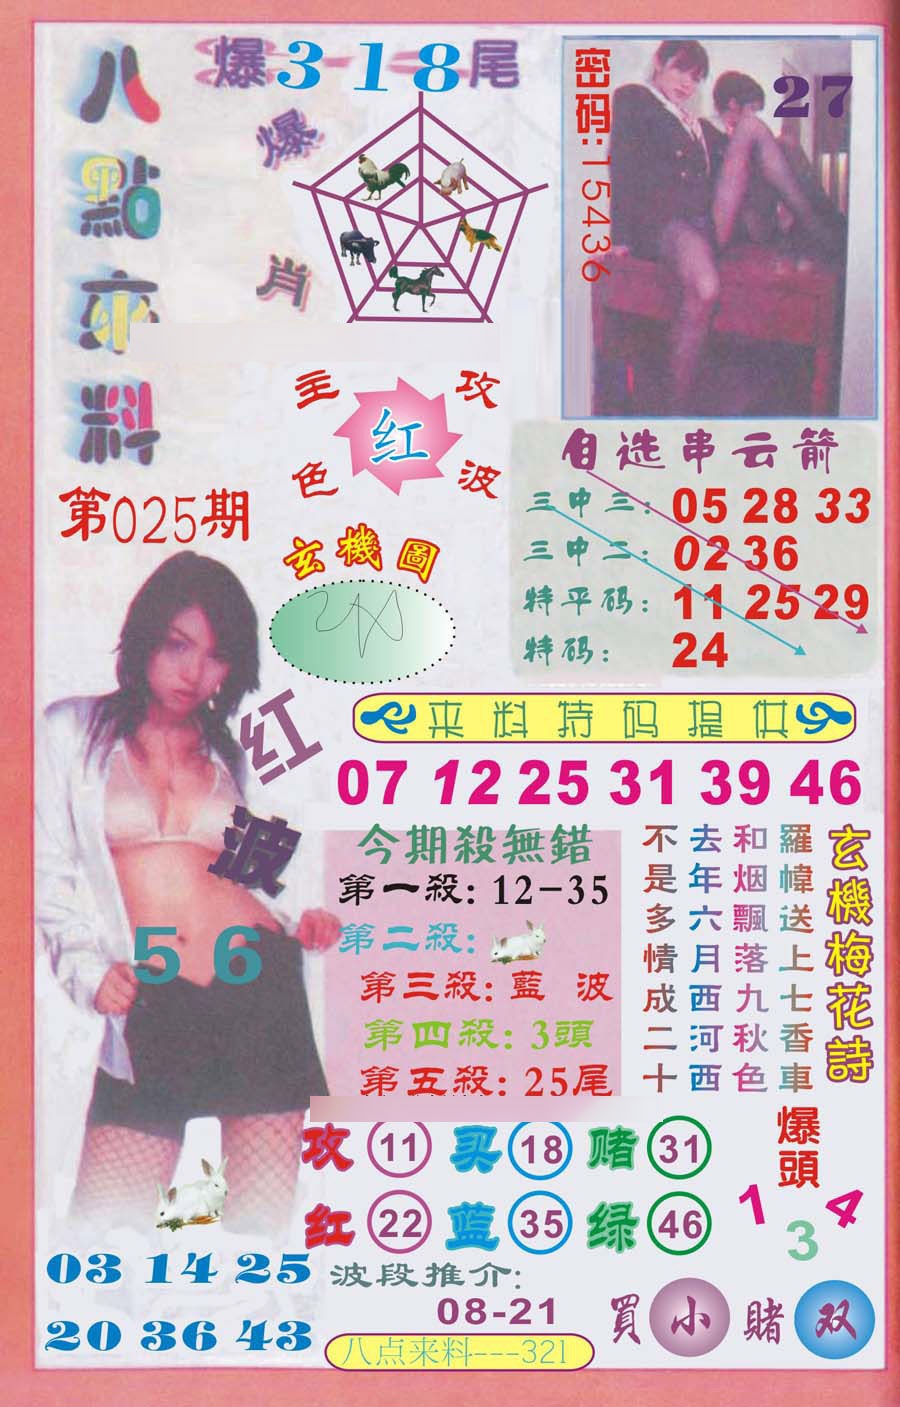 八點來料
爆318尾
爆肖
密码:15436
27
主攻
红
色波
第025期
玄機圖
自选串云箭
三中三: 05 28 33
三中二: 02 36
特平码: 11 25 29
特码: 24
红波
56
来料特码提供
07 12 25 31 39 46
今期殺無錯
第一殺: 12-35
第二殺:
第三殺: 藍波
第四殺: 3頭
第五殺: 25尾
玄機梅花詩
羅幃送上七香車
和烟飄落九秋色
去年六月西河西
不是多情成二十
攻 11 买 18 赌 31
红 22 蓝 35 绿 46
爆頭
1 3 4
03 14 25
20 36 43
波段推介:
08-21
買小賭双
八点来料---321